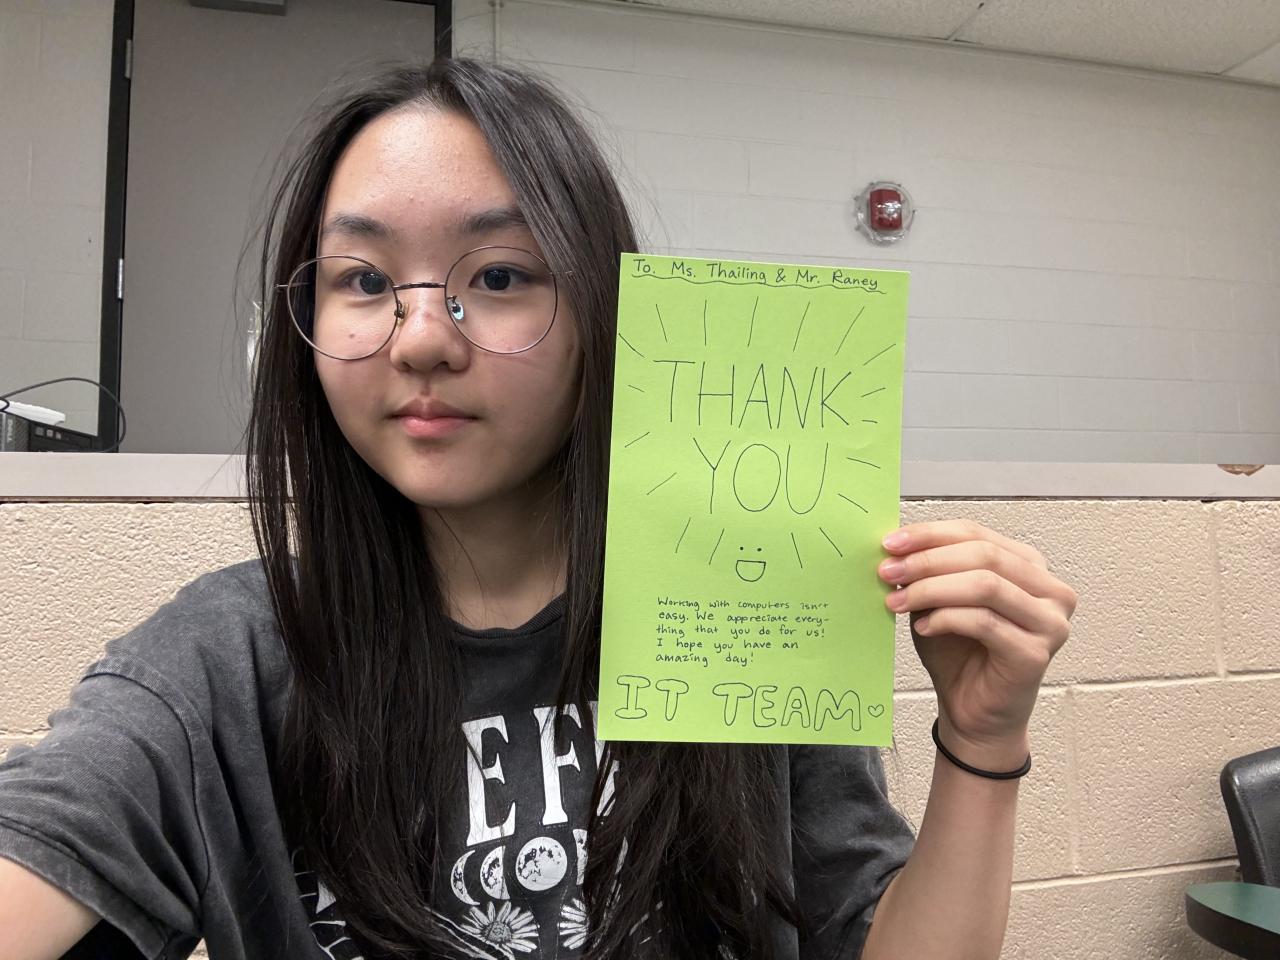 To. Ms. Thailing & Mr. Raney
THANK
YOU
Working with computers isn't
easy. We appreciate every-
thing that you do for us!
I hope you have an
amazing day!
IT TEAM
DELL